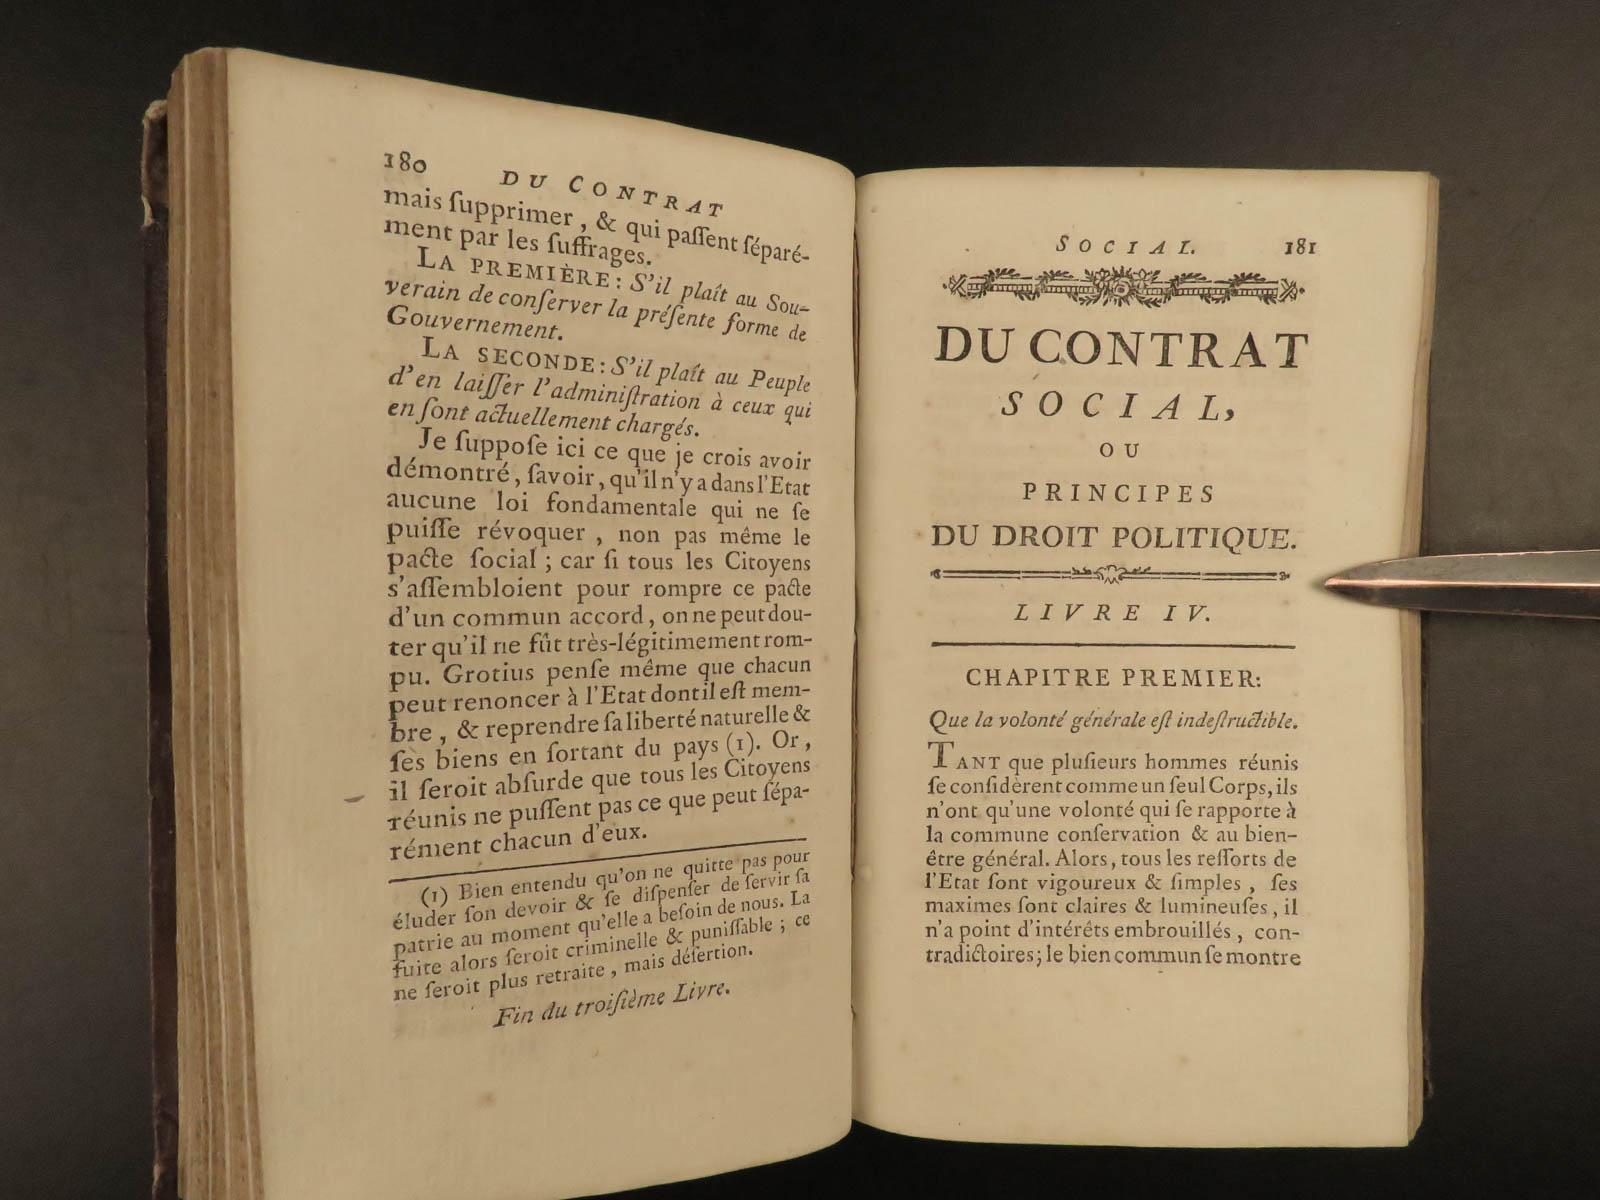 180
DU CONTRAT
mais ſupprimer, & qui paſſent ſéparé-
ment par les ſuffrages.
LA PREMIÈRE: S'il plaît au Sou-
verain de conſerver la préſente forme de
Gouvernement.
LA SECONDE: S'il plaît au Peuple
d'en laiſſer l'adminiſtration à ceux qui
en ſont actuellement chargés.
Je ſuppoſe ici ce que je crois avoir
démontré, ſavoir, qu'il n'y a dans l'Etat
aucune loi fondamentale qui ne ſe
puiſſe révoquer, non pas même le
pacte ſocial; car ſi tous les Citoyens
s'aſſembloient pour rompre ce pacte
d'un commun accord, on ne peut dou-
ter qu'il ne fût très-légitimement rom-
pu. Grotius penſe même que chacun
peut renoncer à l'Etat dont il eſt mem-
bre, & reprendre ſa liberté naturelle &
ſes biens en ſortant du pays (1). Or,
il ſeroit abſurde que tous les Citoyens
réunis ne puſſent pas ce que peut ſépa-
rément chacun d'eux.
(1) Bien entendu qu'on ne quitte pas pour
éluder ſon devoir & ſe diſpenſer de ſervir ſa
patrie au moment qu'elle a beſoin de nous. La
fuite alors ſeroit criminelle & puniſſable; ce
ne ſeroit plus retraite, mais déſertion.
Fin du troiſième Livre.
SOCIAL. 181
DU CONTRAT
SOCIAL,
OU
PRINCIPES
DU DROIT POLITIQUE.
LIVRE IV.
CHAPITRE PREMIER:
Que la volonté générale eſt indeſtructible.
TANT que pluſieurs hommes réunis
ſe conſidèrent comme un ſeul Corps, ils
n'ont qu'une volonté qui ſe rapporte à
la commune conſervation & au bien-
être général. Alors, tous les reſſorts de
l'Etat ſont vigoureux & ſimples, ſes
maximes ſont claires & lumineuſes, il
n'a point d'intérêts embrouillés, con-
tradictoires; le bien commun ſe montre